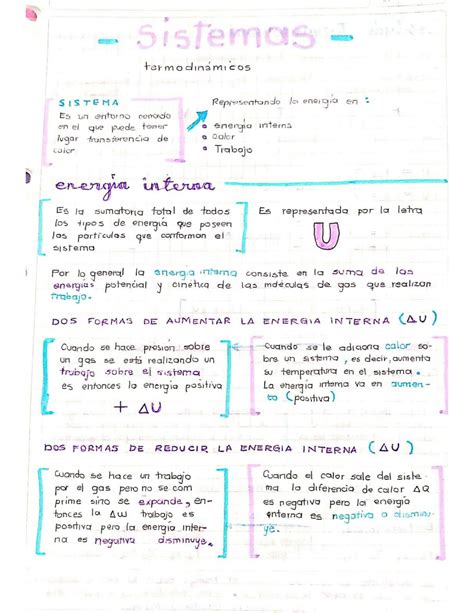 - Sistemas -
termodinámicos
SISTEMA
Es un entorno cerrado
en el que puede tener
lugar transferencia de
calor
Representando la energía en :
energía interna
Calor
Trabajo
energía interna
Es la sumatoria total de todos
los tipos de energía que poseen
las partículas que conforman el
sistema
Es representada por la letra
U
Por lo general la energía interna consiste en la suma de las
energías potencial y cinética de las moléculas de gas que realizan
trabajo.
DOS FORMAS DE AUMENTAR LA ENERGIA INTERNA (ΔU)
Cuando se hace presión sobre
un gas se está realizando un
trabajo sobre el sistema
es entonces la energía positiva
+ ΔU
Cuando se le adiciona calor so-
bre un sistema, es decir, aumenta
su temperatura en el sistema.
La energía interna va en aumen-
to (positiva)
DOS FORMAS DE REDUCIR LA ENERGIA INTERNA (ΔU)
Cuando se hace un trabajo
por el gas pero no se com
prime sino se expande, en-
tonces la ΔW trabajo es
positiva pero la energía inter-
na es negativa disminuye.
Cuando el calor sale del siste-
ma la diferencia de calor ΔQ
es negativa pero la energía
interna es negativa o disminu-
ye.